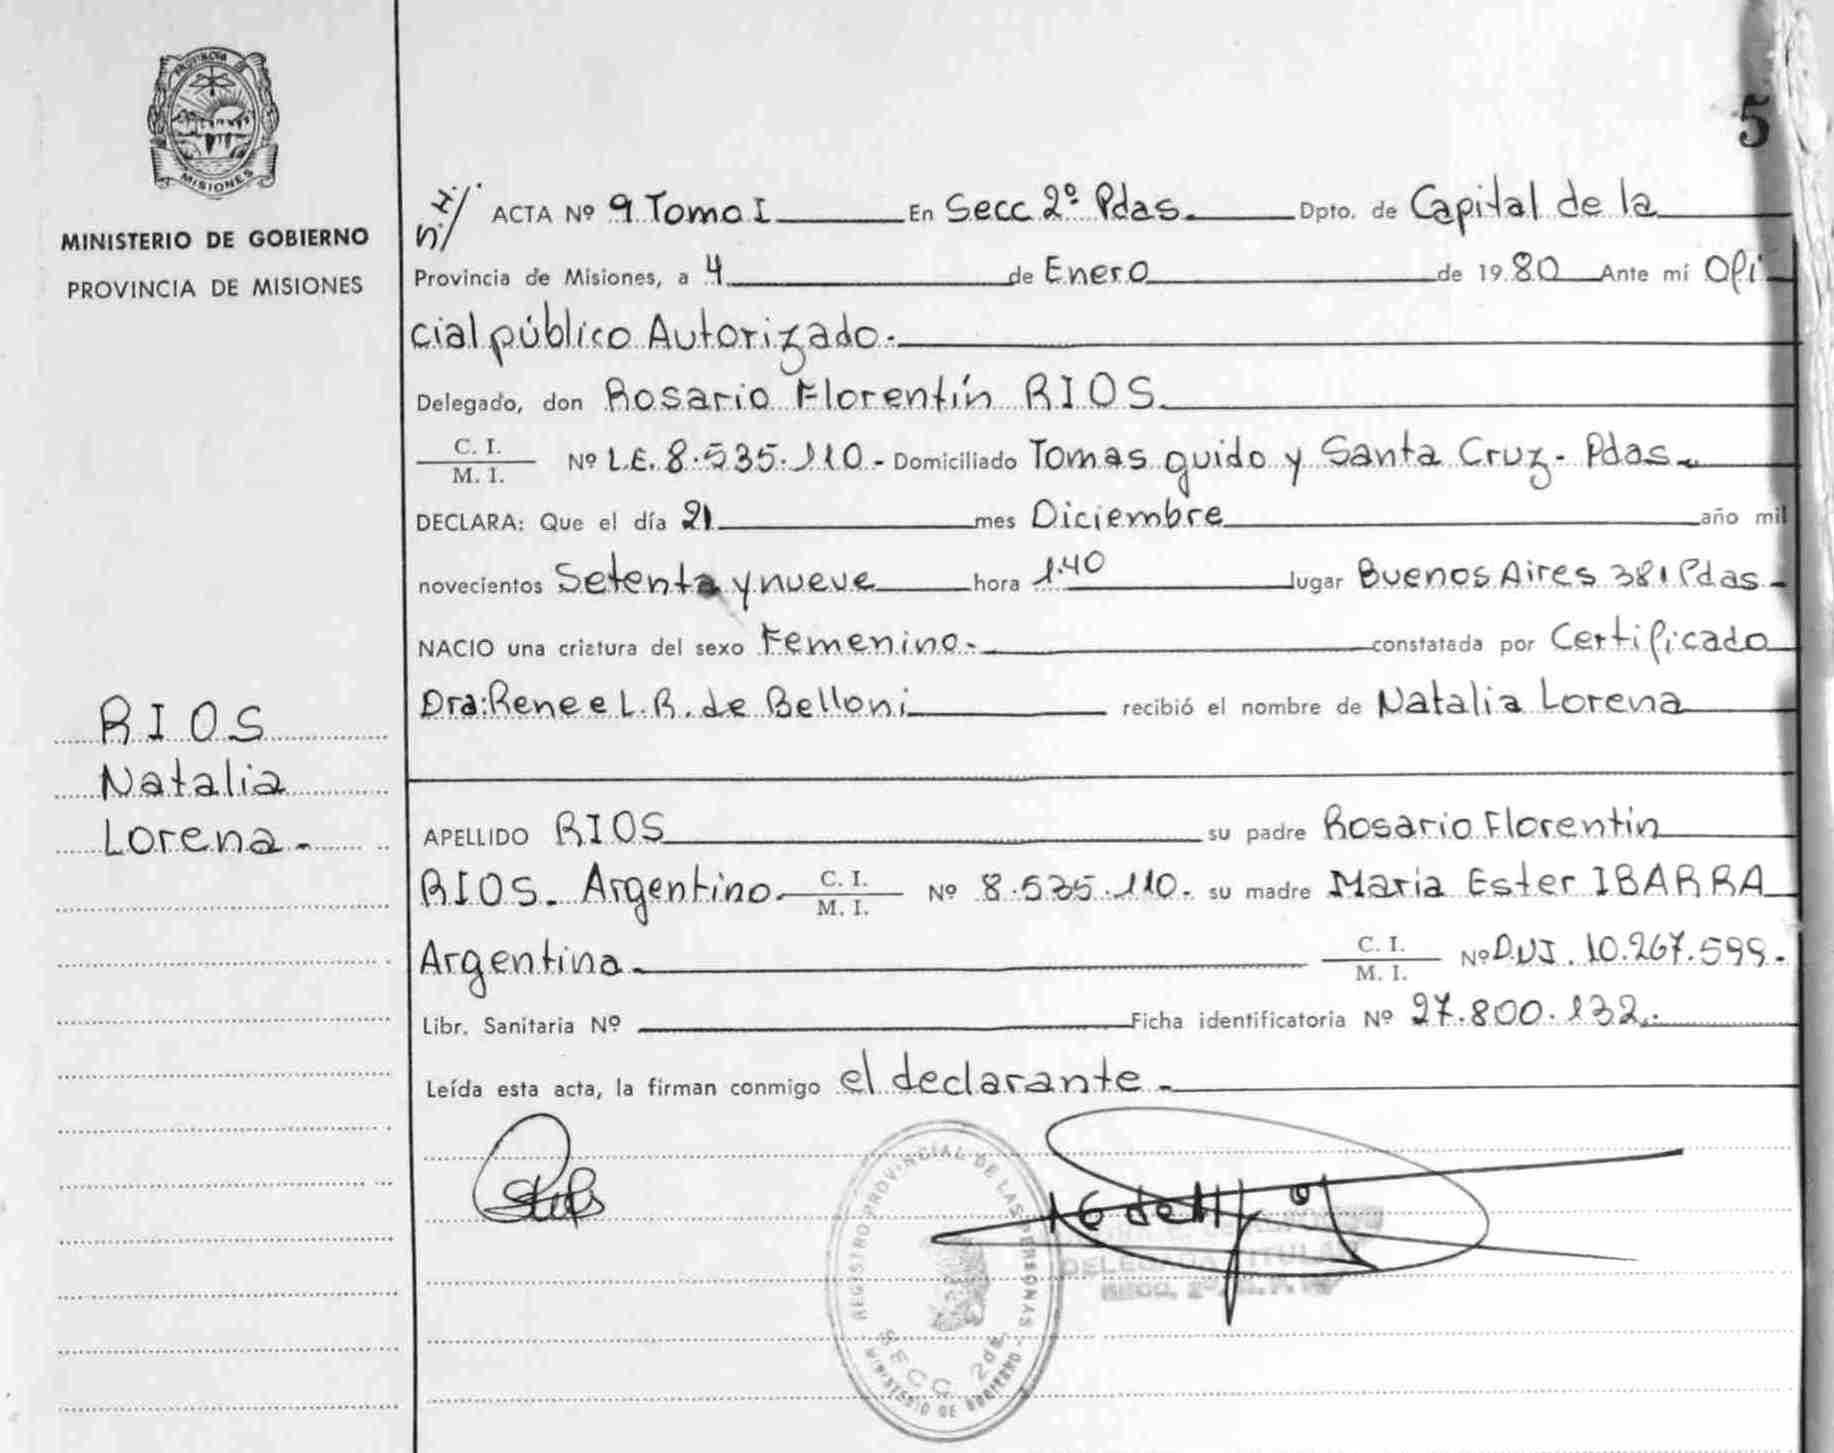 PROVINCIA DE
MISIONES
MINISTERIO DE GOBIERNO
PROVINCIA DE MISIONES
RIOS
Natalia
Lorena.-
5
ACTA Nº 9 Tomo I En Secc 2º Pdas. Dpto. de Capital de la
Provincia de Misiones, a 4 de Enero de 1980 Ante mí Ofi
cial público Autorizado.-
Delegado, don Rosario Florentín RIOS.
C. I.
M. I.
Nº L.E. 8.535.110.- Domiciliado Tomas guido y Santa Cruz- Pdas.-
DECLARA: Que el día 21 mes Diciembre año mil
novecientos Setenta y nueve hora 1.40 lugar Buenos Aires 381 Pdas-
NACIO una criatura del sexo Femenino.- constatada por Certificado
Dra: Renee L.R. de Belloni recibió el nombre de Natalia Lorena
APELLIDO RIOS su padre Rosario Florentin
RIOS.- Argentino.- C. I.
M. I.
Nº 8.535.110.- su madre Maria Ester IBARRA
Argentina.- C. I.
M. I.
Nº D.N.I. 10.267.599.-
Libr. Sanitaria Nº Ficha identificatoria Nº 27.800.132.-
Leída esta acta, la firman conmigo el declarante.-
REGISTRO PROVINCIAL DE LAS PERSONAS - MINISTERIO DE GOBIERNO
SECC. 2da.
DELEGADA TITULAR